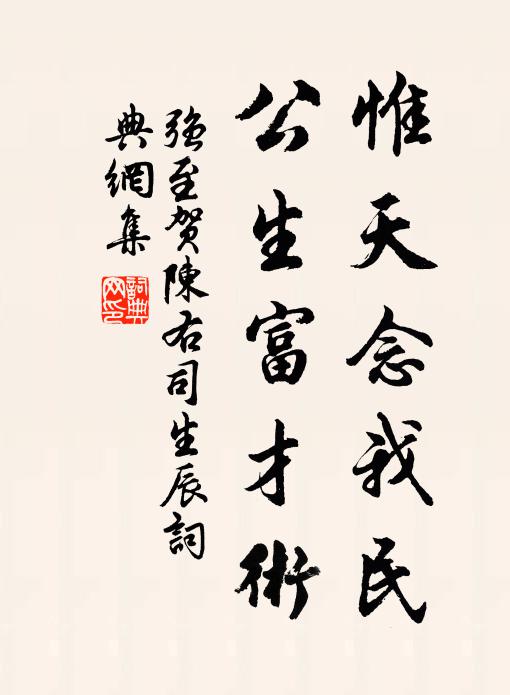 惟天念我民
公生富才術
強至賀陳右司生辰詞
典網集
詞典
网印